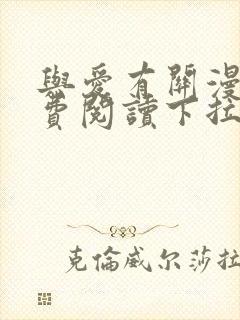 與愛有關漫
費閱讀下拉
克倫威尔莎拉